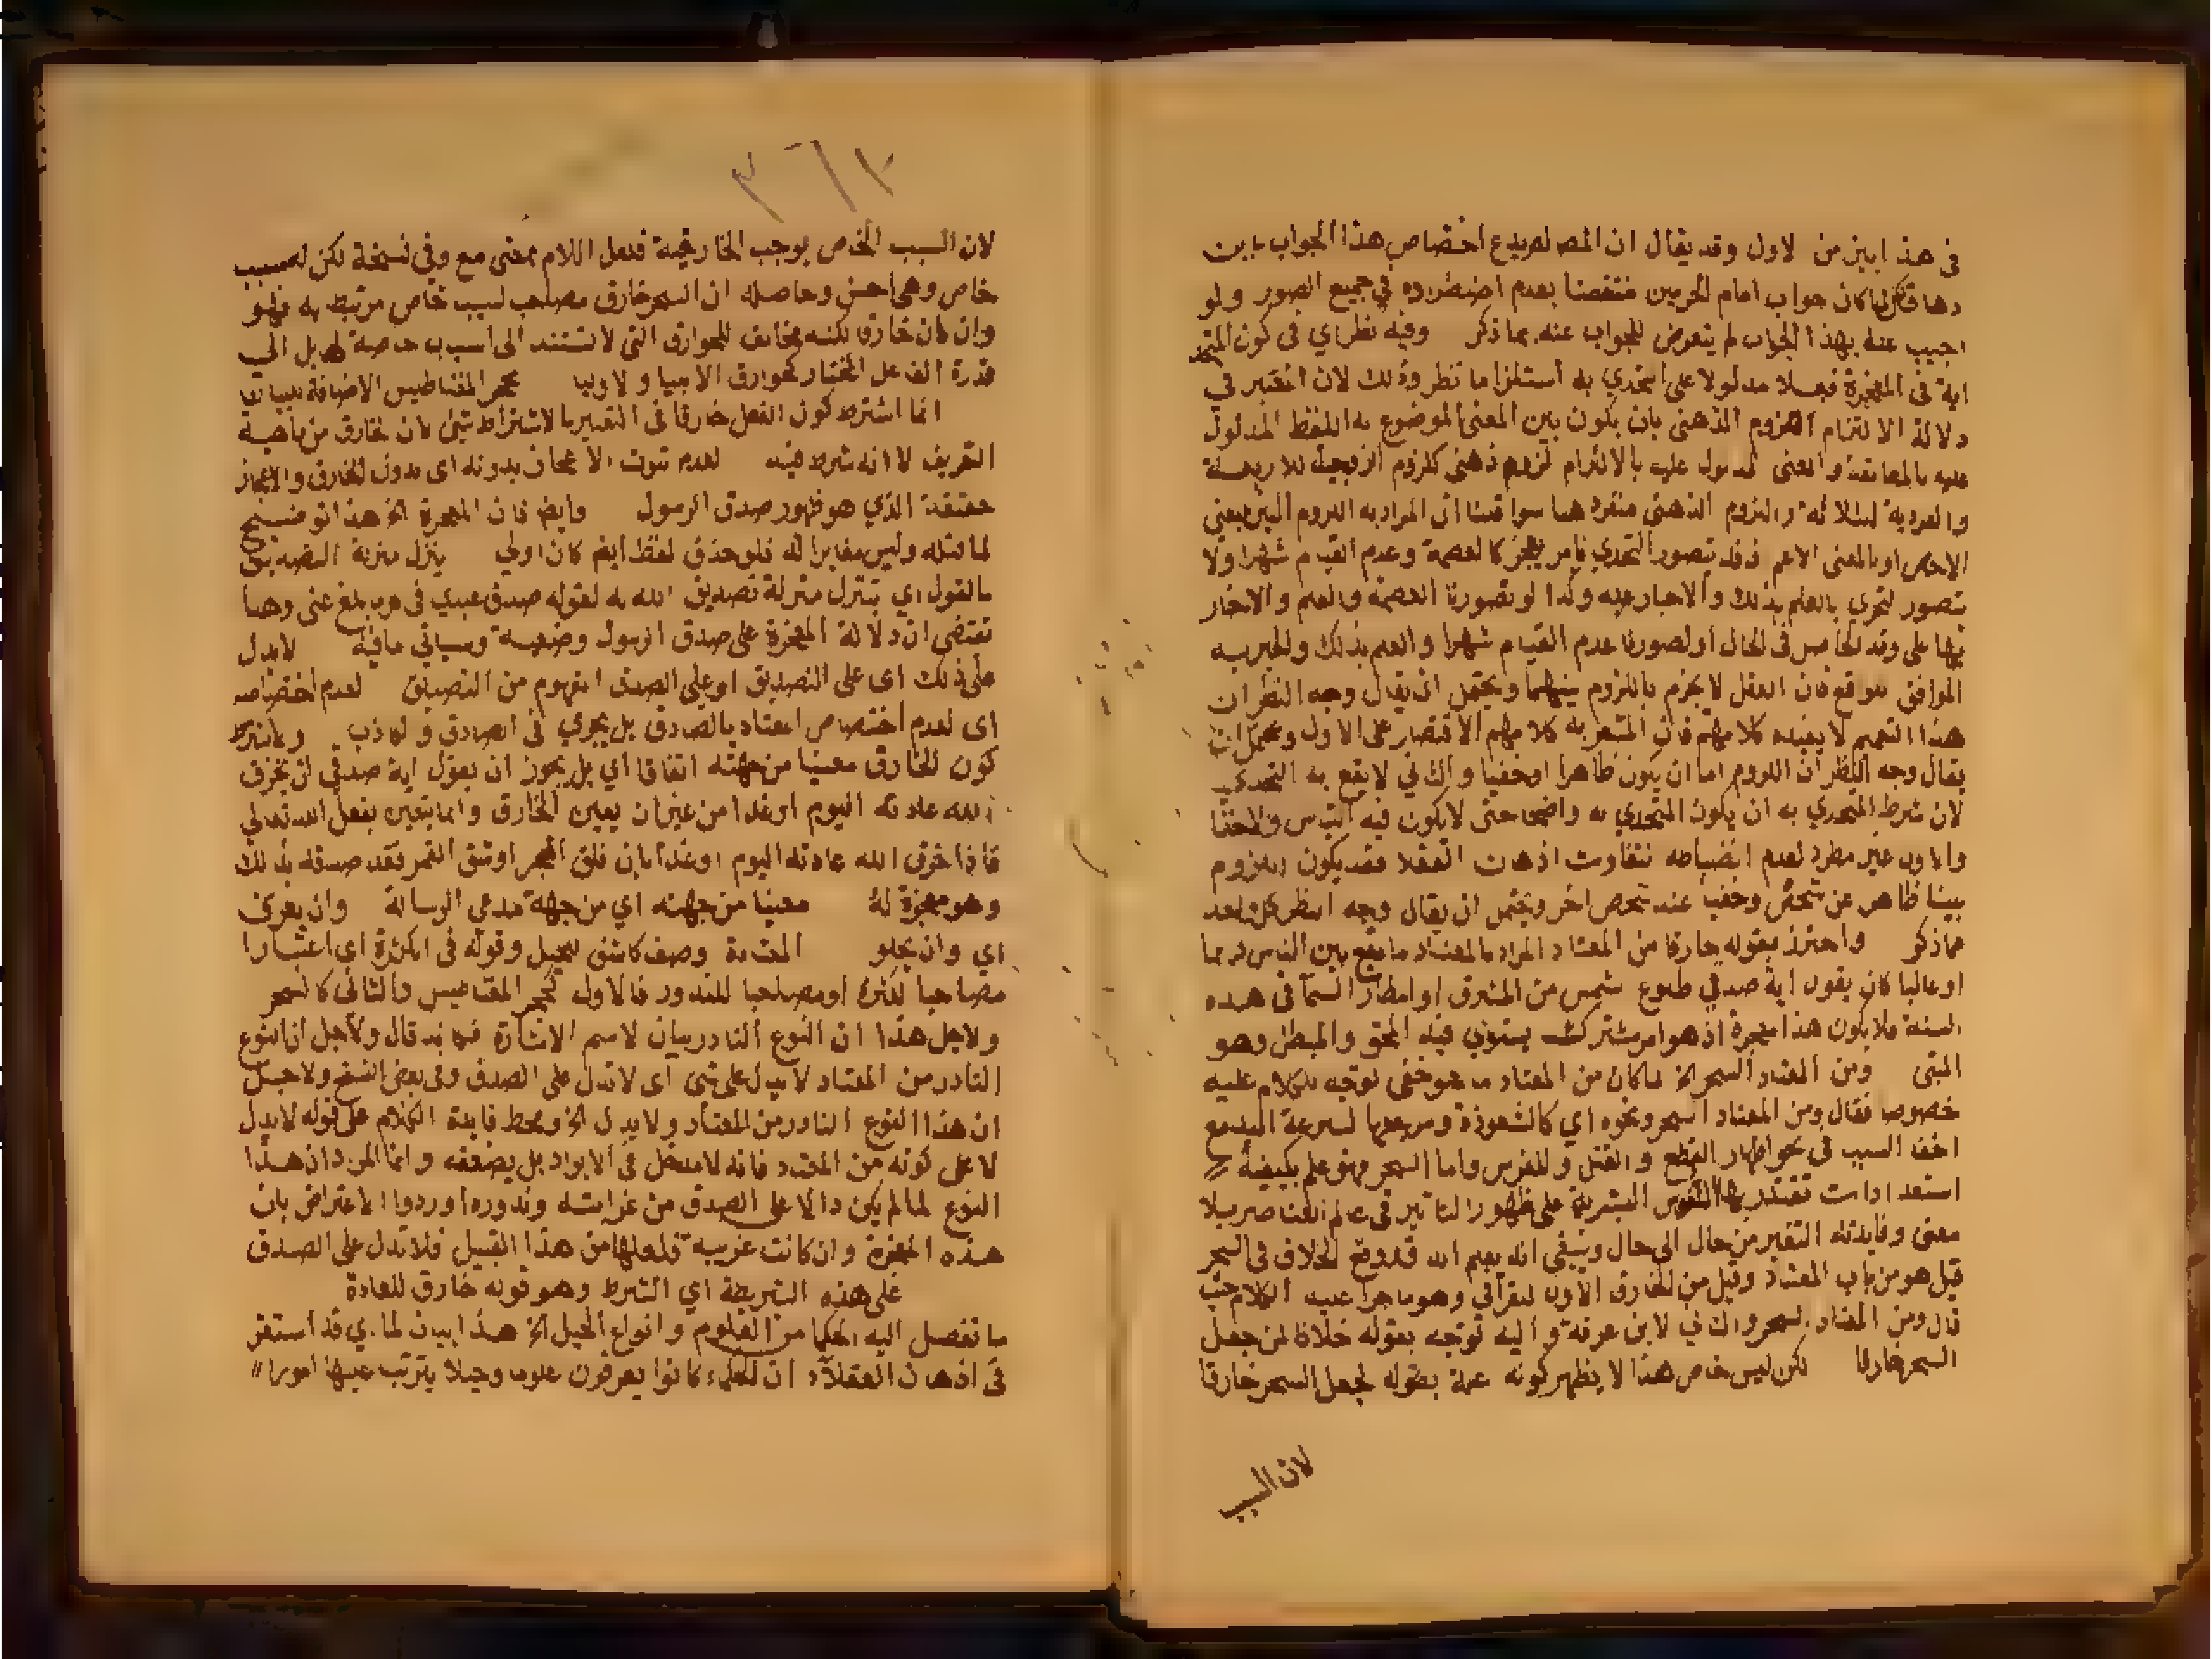 في هذا بين من لاول وقد يقال ان المصـ لم يدع اختصاص هذا الجواب باين
دهاق لما كان جواب امام الحرمين منتقضا بعدم اضطراده في جميع الصور ولو
اجيب عنه بهذا الجواب لم يتعرض للجواب عنه بما ذكر وفيه نظر اي في كون
اية في المعجزة فعلا مدلولا على التحدي به استلزاما نظر وذلك لان المعتبر في
دلالة الالتزام اللزوم الذهني بان يكون بين المعنى الموضوع به اللفظ المدلول
عليه بالمطابقة والمعنى المدلول عليه بالالتزام لزوم ذهني كلزوم الزوجية للاربعة
والفردية للثلاثة واللزوم الذهني منفرد هنا سوا قلنا ان المراد به اللزوم البين بمعنى
الاخص او بالمعنى الاعم فقد تصور التحدي بامر يعجز كالعصمة وعدم القيام شهرا ولا
يتصور التحدي بالعلم بذلك والاخبار عنه وكذا لو تصورنا العصمة والعلم والاخبار
بها على وقد الحاصل في الحال او تصورنا عدم القيام شهرا والعلم بذلك والخبر به
الموافق للواقع فان العقل لا يجزم باللزوم بينهما ويحتمل ان يقال وجه النظر ان
هذا التعميم لا يفيده كلامهم فان المشعر به كلامهم الاقتصار على الاول ويحتمل ان
يقال وجه النظر ان اللزوم اما ان يكون ظاهرا او خفيا والثاني لا يقع به التحدي
لان شرط المتحدي به ان يكون المتحدي به واضحا حتى لا يكون فيه التباس ولا خفا
والاول غير مطرد لعدم انضباطه لتفاوت اذهان العقلا فقد يكون اللزوم
بينا ظاهر عن شخص وخفيا عند شخص اخر ويحتمل ان يقال وجه النظر كل واحد
مما ذكر واحترز بقوله خارقا من المعتاد المراد بالمعتاد ما يقع بين الناس دايما
او غالبا كان يقول اية صدقي طلوع شمس من المشرق او امطار السما في هذه
السنة فلا يكون هذا معجزة اذ هو امر مشترك يستوي فيه المحق والمبطل وهو
المتبني ومن المعتاد السحر الخ لما كان من المعتاد ما هو خفي توجه للكلام عليه
خصوصا فقال ومن المعتاد السحر ونحوه اي كالشعوذة ومرجعها لسرعة اليد مع
اخفا السبب في نحو اظهار القطع والقتل وللغرس واما السحر فهو علم بكيفية
استعدادات تقتدر بها النفوس البشرية على ظهور التاثير في عالم العناصر بلا
معنى وفايدته التغير من حال الى حال وينبغي انه يعلم انه قد وقع الخلاف في السحر
قيل هو من باب المعتاد وقيل من الخارق الاول للقرافي وهو ما جرا عليه الكلام حيث
قال ومن المعتاد السحر والثاني لابن عرفة واليه توجه بقوله خلافا لمن جعل
السحر خارقا لكن ليس خاص هذا لا يظهر كونه علة بقوله لجعل السحر خارقا
لان السبب
٣٦٢
لان السبب الخاص يوجب الخارقية فلعل اللام بمعنى مع وفي نسخة لكن لسبب
خاص وهي احسن وحاصله ان السحر خارق مصاحب لسبب خاص مرتبط به فهو
وان كان خارق لكنه مخالف للخوارق التي لا تستند الى اسباب خاصة لها بل الى
قدرة الفاعل المختار كخوارق الانبيا والاوليا كحجر المغناطيس الاضافة للبيان
انما اشترط كون الفعل خارقا في التعبير بالاشتراط شئ لان الخارق من ماهية
التعريف لا انه شرط فيه لعدم ثبوت الاعجاز بدونه اى بدون الخارق والاعجاز
حقيقة الذي هو ظهور صدق الرسول وايضا فان المعجزة الخ هذا توضيح
لما قبله وليس مغايرا له فلو حذف لفظ ايضا كان اولى ينزل منزلة التصديق
بالقول اي يتنزل منزلة تصديق الله به لقوله صدق عبدي في ما يبلغ عني وهذا
تقتضى ان دلالة المعجزة على صدق الرسول وضعية وسياتي ما فيه لا يدل
على ذلك اى على التصديق او على الصدق المفهوم من التصديق لعدم اختصاصه
اى لعدم اختصاص المعتاد بالصادق بل يجري في الصادق والكاذب ولا يشترط
كون الخارق معينا من جهته اتفاقا اي بل يجوز ان يقول اية صدقي ان يخرق
الله عادته اليوم او غدا من غير ان يعين الخارق وانما يتعين بفعل الله تعالى
فاذا خرق الله عادته اليوم او غدا بان فلق البحر او شق القمر فقد صدقه بذلك
وهو معجزة له معينا من جهته اي من جهة مدعى الرسالة وان يعرى
اي وان يخلو المعتادة وصف كاشف للحيل وقوله في الكثرة اى اعتبارا
مصاحبا للكثرة او مصاحبا للندور فالاول كحجر المغناطيس والثاني كالسحر
ولاجل هذا ان النوع النادر بيان لاسم الاشارة فكانه قال ولاجل ان النوع
النادر من المعتاد لا يدل على شئ اى لا تدل على الصدق وفي بعض النسخ ولاجل
ان هذا النوع النادر من المعتاد ولا يدل الخ ومحط فايدة الكلام على قوله لا يدل
لا على كونه من المعتاد فانه لا مدخل في الايراد بل يضعفه وانما المراد ان هذا
النوع لما لم يكن دالا على الصدق من غرابته وندوره اوردوا الاعتراض بان
هذه المعجزة وان كانت غريبة فلعلها من هذا القبيل فلا تدل على الصدق
على هذه الشريطة اي الشرط وهو قوله خارق للعادة
ما تفصل اليه الحكما من العلوم وانواع الحيل الخ هذا بيان لما. ي قد استقر
في اذهان العقلاء ان الحكماء كانوا يعرفون علوما وحيلا يترتب عليها امورا